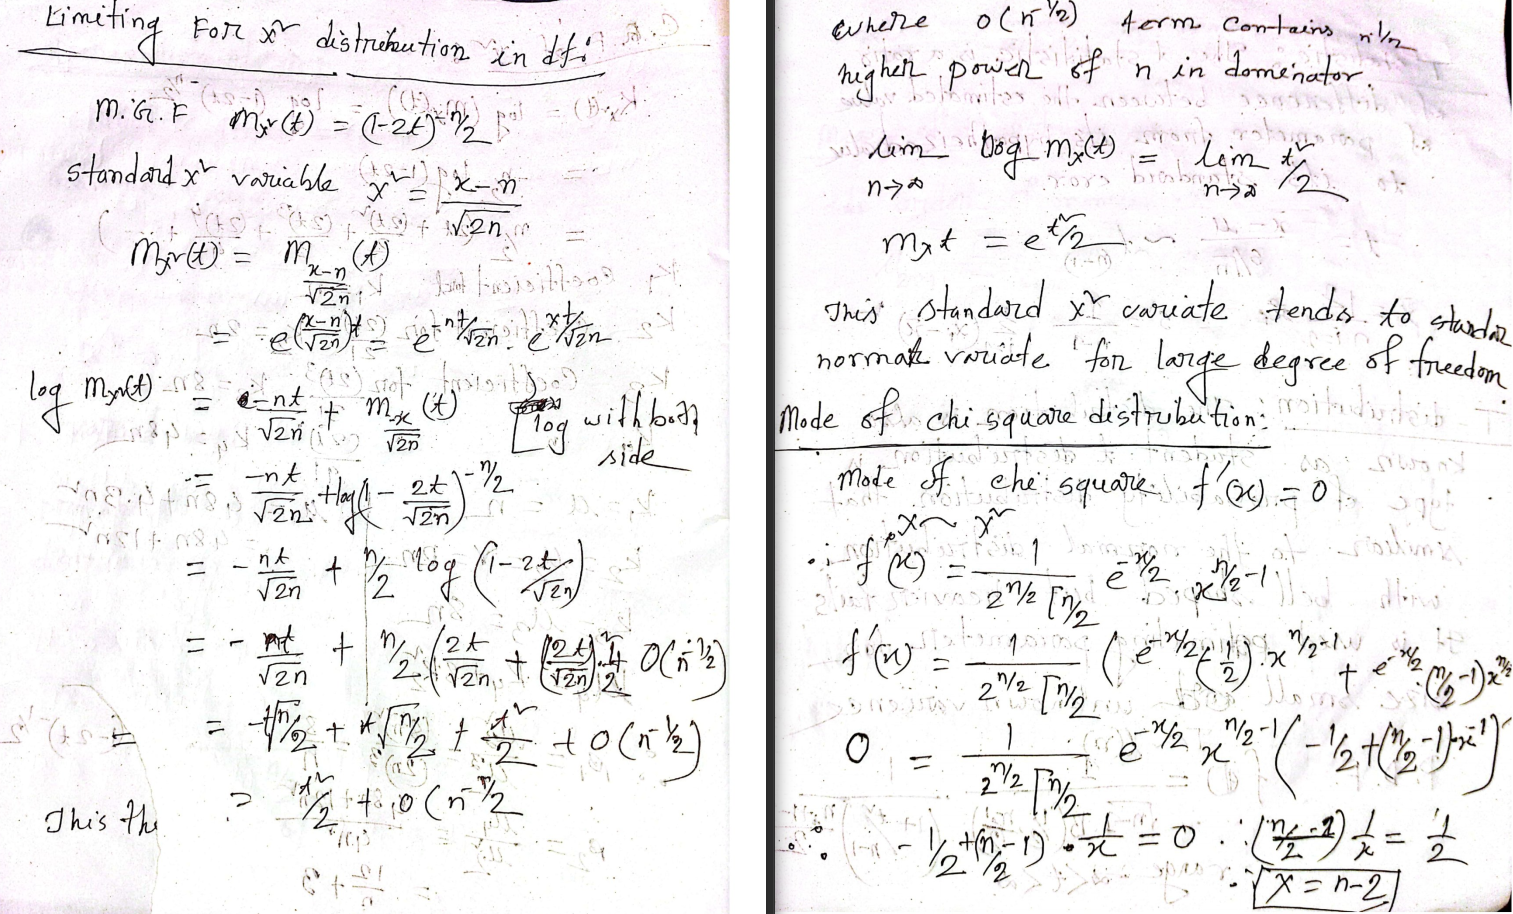 Limiting For x² distribution in df:
M.G.F M_x²(t) = (1-2t)^-n/2
standard x² variable x² = x-n/√2n
M_x²(t) = M_(x-n/√2n) (t)
= e^(x-n/√2n)t = e^-nt/√2n . e^xt/√2n
log M_x²(t) = -nt/√2n + M_x/√2n (t) [log with both side
= -nt/√2n + log(1 - 2t/√2n)^-n/2
= - nt/√2n + n/2 log (1-2t/√2n)
= - nt/√2n + n/2 (2t/√2n + (2t/√2n)² . 1/2 + O(n^-1/2)
= -t√n/2 + t√n/2 + t²/2 + O(n^-1/2)
= t²/2 + O(n^-1/2
This the
where O(n^-1/2) term contains n^1/2
higher power of n in dominator.
lim n→∞ log m_x(t) = lim n→∞ t²/2
m_x t = e^t²/2
This standard x² variate tends to standar
normal variate for large degree of freedom
Mode of chi square distribution:
Mode of chi square f'(x) = 0
x ~ x²
f(x) = 1/2^n/2 Γn/2 e^-x/2 x^n/2-1
f'(x) = 1/2^n/2 Γn/2 (e^-x/2 (-1/2) . x^n/2-1 + e^-x/2 (n/2-1) x^n/2
0 = 1/2^n/2 Γn/2 e^-x/2 x^n/2-1 (-1/2 + (n/2-1) . x^-1)
∴ -1/2 + (n/2-1) . 1/x = 0 ∴ (n-2/2) 1/x = 1/2
∴ x = n-2